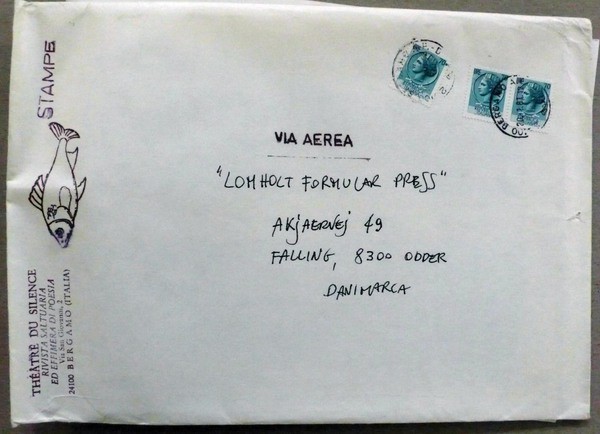 STAMPE
THÉÂTRE DU SILENCE
RIVISTA SALTUARIA
ED EFFIMERA DI POESIA
Via San Giovanni, 2
24100 BERGAMO (ITALIA)
VIA AEREA
"LOMHOLT FORMULAR PRESS"
AKJAERVEJ 49
FALLING, 8300 ODDER
DANIMARCA